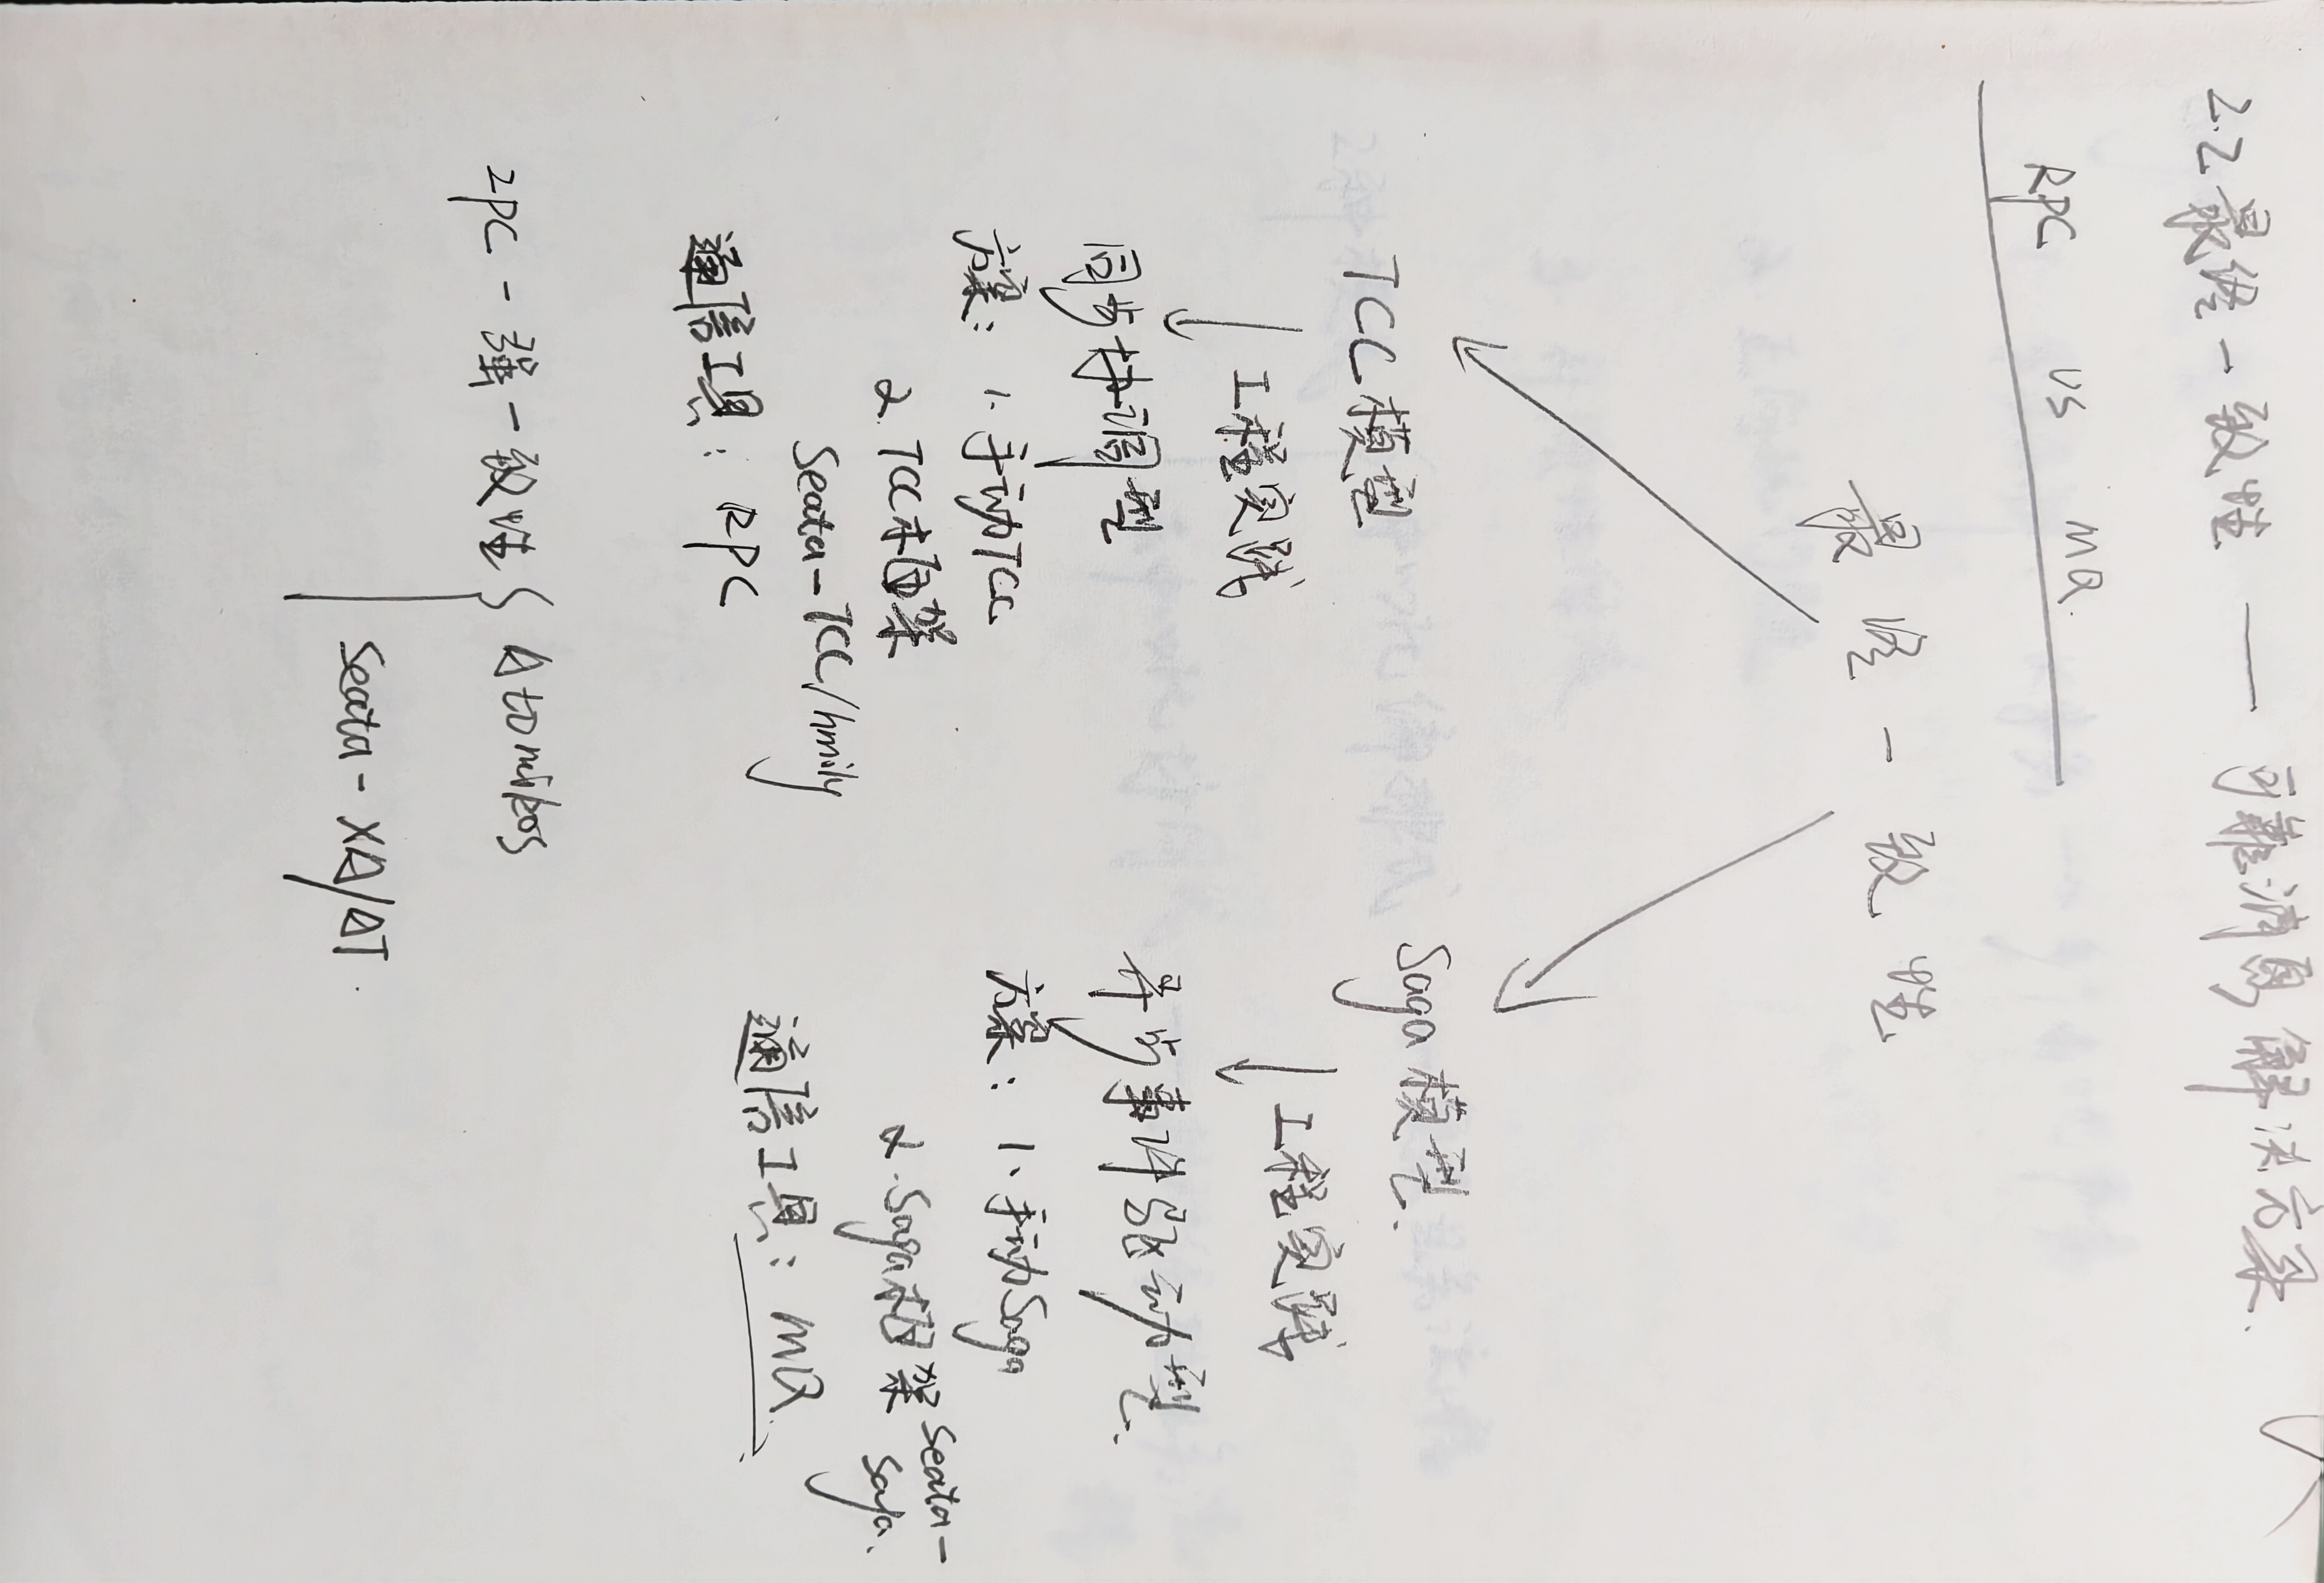 2.2 最终一致性 —— 可靠消息解决方案.
RPC VS MQ.
最终一致性
TCC模型
工程实践
同步协调型
方案: 1. 手动TCC
2. TCC框架
Seata-TCC/hmily
通信工具: RPC
Saga模型.
工程实践
异步事件驱动型.
方案: 1. 手动Saga
2. Saga框架 Seata-
Saga.
通信工具: MQ.
2PC - 强一致性 { Atomikos
Seata - XA/AT.